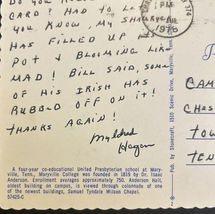 CARD? HAD TO LE
YOU KNOW MY SHAM
HAS FILLED UP
POT & BLOOMING LIKE
MAD! BILL SAID, SOME
OF HIS IRISH HAS
RUBBED OFF ON IT!
THANKS AGAIN!
Mildred
Hagan
A four-year co-educational United Presbyterian school at Mary-
ville, Tenn., Maryville College was founded in 1819 by Dr. Isaac
Anderson. Enrollment averages approximately 750. Anderson Hall,
oldest building on campus, is viewed through colonnade of one
of the newest buildings, Samuel Tyndale Wilson Chapel.
57625-C
PM
1976
Pub. by
Maryville, Tenn
CAM
CHES
TOW
TEN